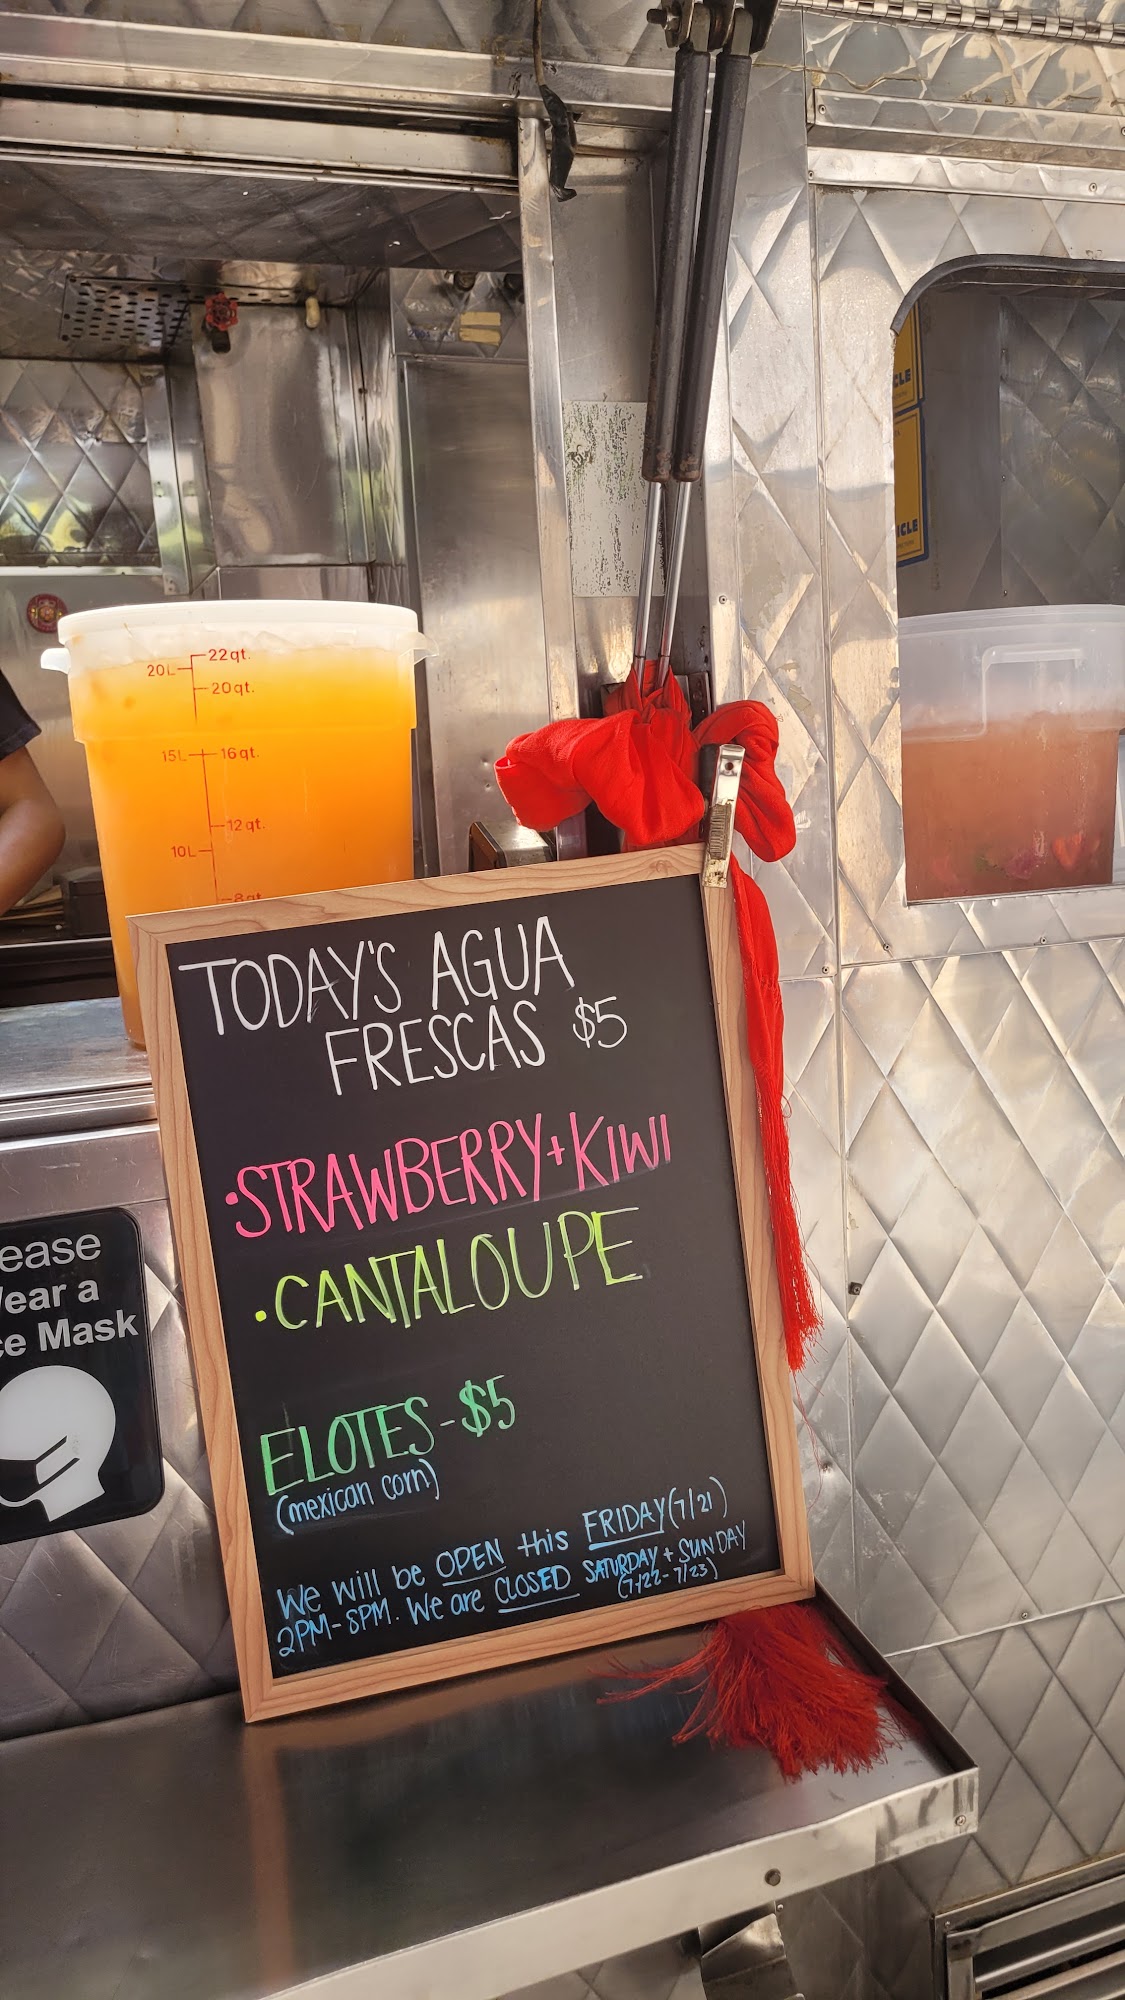 22qt.
20L
20qt.
15L
16qt.
12qt.
10L
8qt
CLE
ICLE
TODAY'S AGUA
FRESCAS $5
•STRAWBERRY+KIWI
•CANTALOUPE
ELOTES-$5
(mexican corn)
We will be OPEN this FRIDAY (7/21)
2PM-8PM. We are CLOSED SATURDAY + SUNDAY
(7/22-7/23)
ease
ear a
ce Mask